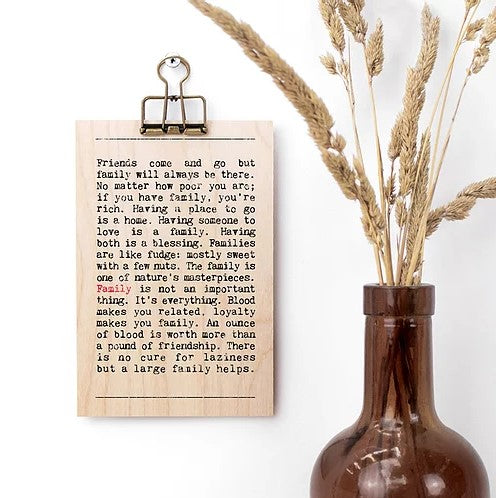 Friends come and go but
family will always be there.
No matter how poor you are;
if you have family, you're
rich. Having a place to go
is a home. Having someone to
love is a family. Having
both is a blessing. Families
are like fudge: mostly sweet
with a few nuts. The family is
one of nature's masterpieces.
Family is not an important
thing. It's everything. Blood
makes you related, loyalty
makes you family. An ounce
of blood is worth more than
a pound of friendship. There
is no cure for laziness
but a large family helps.